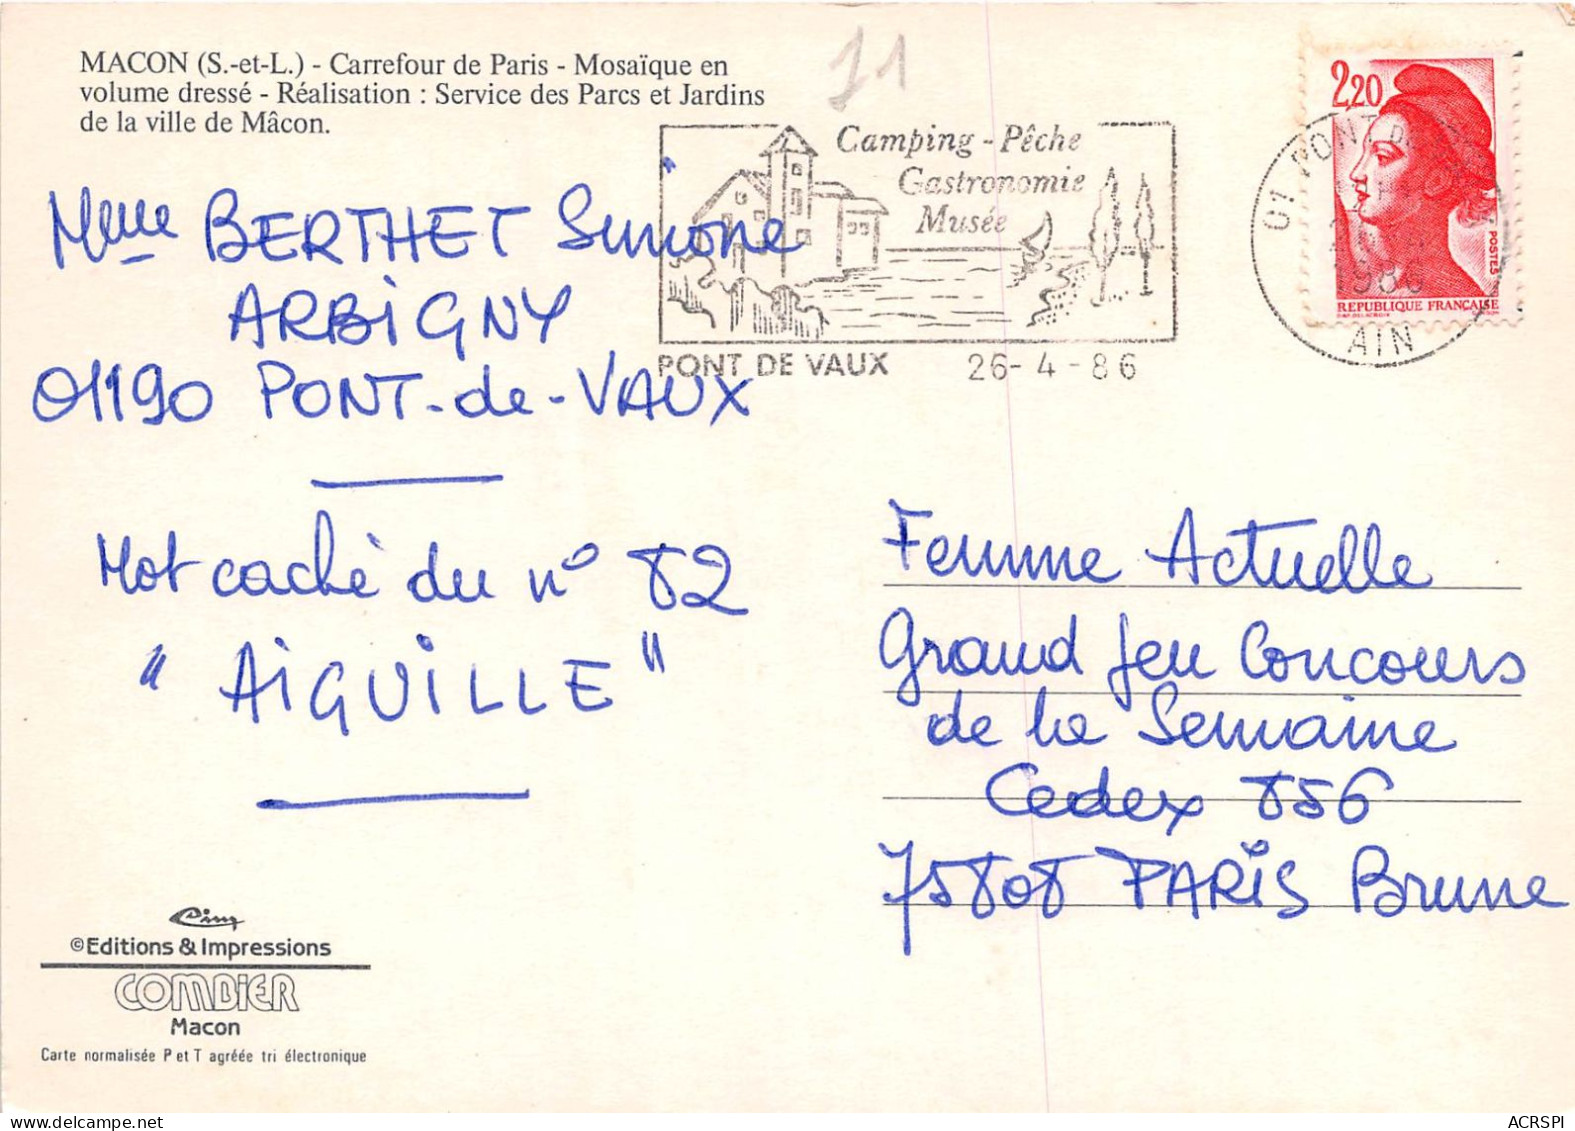 MACON (S.-et-L.) - Carrefour de Paris - Mosaïque en
volume dressé - Réalisation : Service des Parcs et Jardins
de la ville de Mâcon.
71
Camping - Pêche
Gastronomie
Musée
PONT DE VAUX 26-4-86
2,20
POSTES
REPUBLIQUE FRANÇAISE
01 PONT DE
1986
AIN
Mme BERTHET Simone
ARBiGNY
01190 PONT-de-VAUX
Mot caché du n° 82
" AiGUiLLE "
Femme Actuelle
Grand Jeu Concours
de la Semaine
Cedex 856
75808 PARiS Brune
Cim
©Editions & Impressions
COMBIER
Macon
Carte normalisée P et T agréée tri électronique
www.delcampe.net
ACRSPI